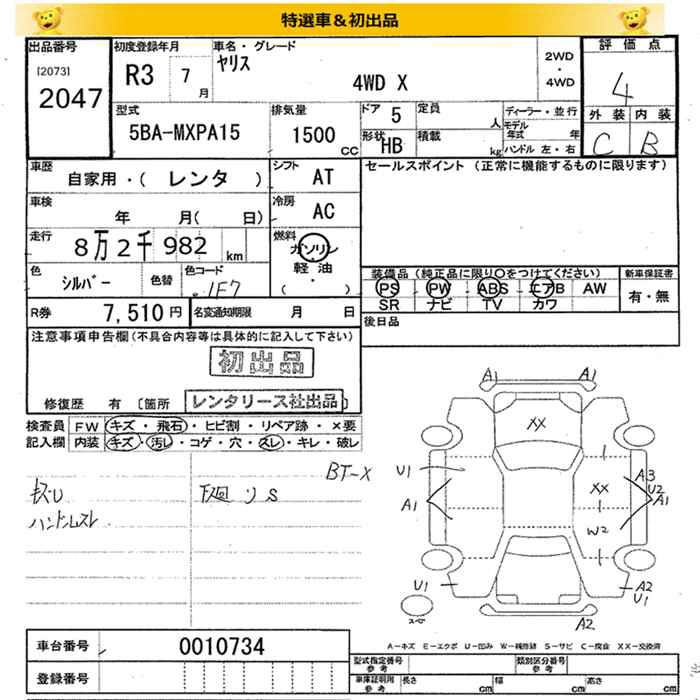 特選車＆初出品
出品番号
[2073]
2047
初度登録年月
R3 7 月
車名・グレード
ヤリス
4WD X
2WD
・
4WD
評価点
4
外装 内装
C B
型式
5BA-MXPA15
排気量
1500 CC
ドア 5
形状 HB
定員 人
積載 kg
ディーラー・並行
モデル年式 年
ハンドル 左・右
車歴
自家用・( レンタ )
シフト AT
セールスポイント (正常に機能するものに限ります)
車検
年 月( 日)
冷房 AC
走行
8万2千982 km
燃料
ガソリン
軽油
( )
色 シルバー
色替
色コード 1F7
装備品 (純正品に限り○をつけてください)
PS PW ABS エアB AW
SR ナビ TV カワ
新車保証書
有・無
R券 7,510円
名変通知期限 月 日
後日品
注意事項申告欄 (不具合内容等は具体的に記入して下さい)
初出品
修復歴 有 [箇所
レンタリース社出品
検査員
記入欄
FW キズ・飛石・ヒビ割・リペア跡・×要
内装 キズ・汚レ・コゲ・穴・スレ・キレ・破レ
BT-X
下廻りS
A1 A1
XX
U1
A1
XX
A3
U2
A1
W2
U1
A2
U1
A2
スペア
A-キズ E-エクボ U-凹み W-補修跡 S-サビ C-腐食 XX-交換済
車台番号 0010734
登録番号
型式指定番号
参考
類別区分番号
参考
車庫証明用
参考
長さ cm 幅 cm 高さ cm